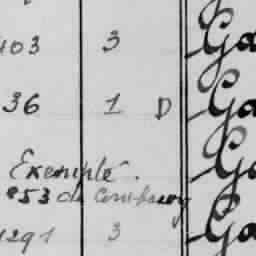 403 3 Ga
36 1 D Ga
Exemple. Ga
853 de
1291 3 Ga